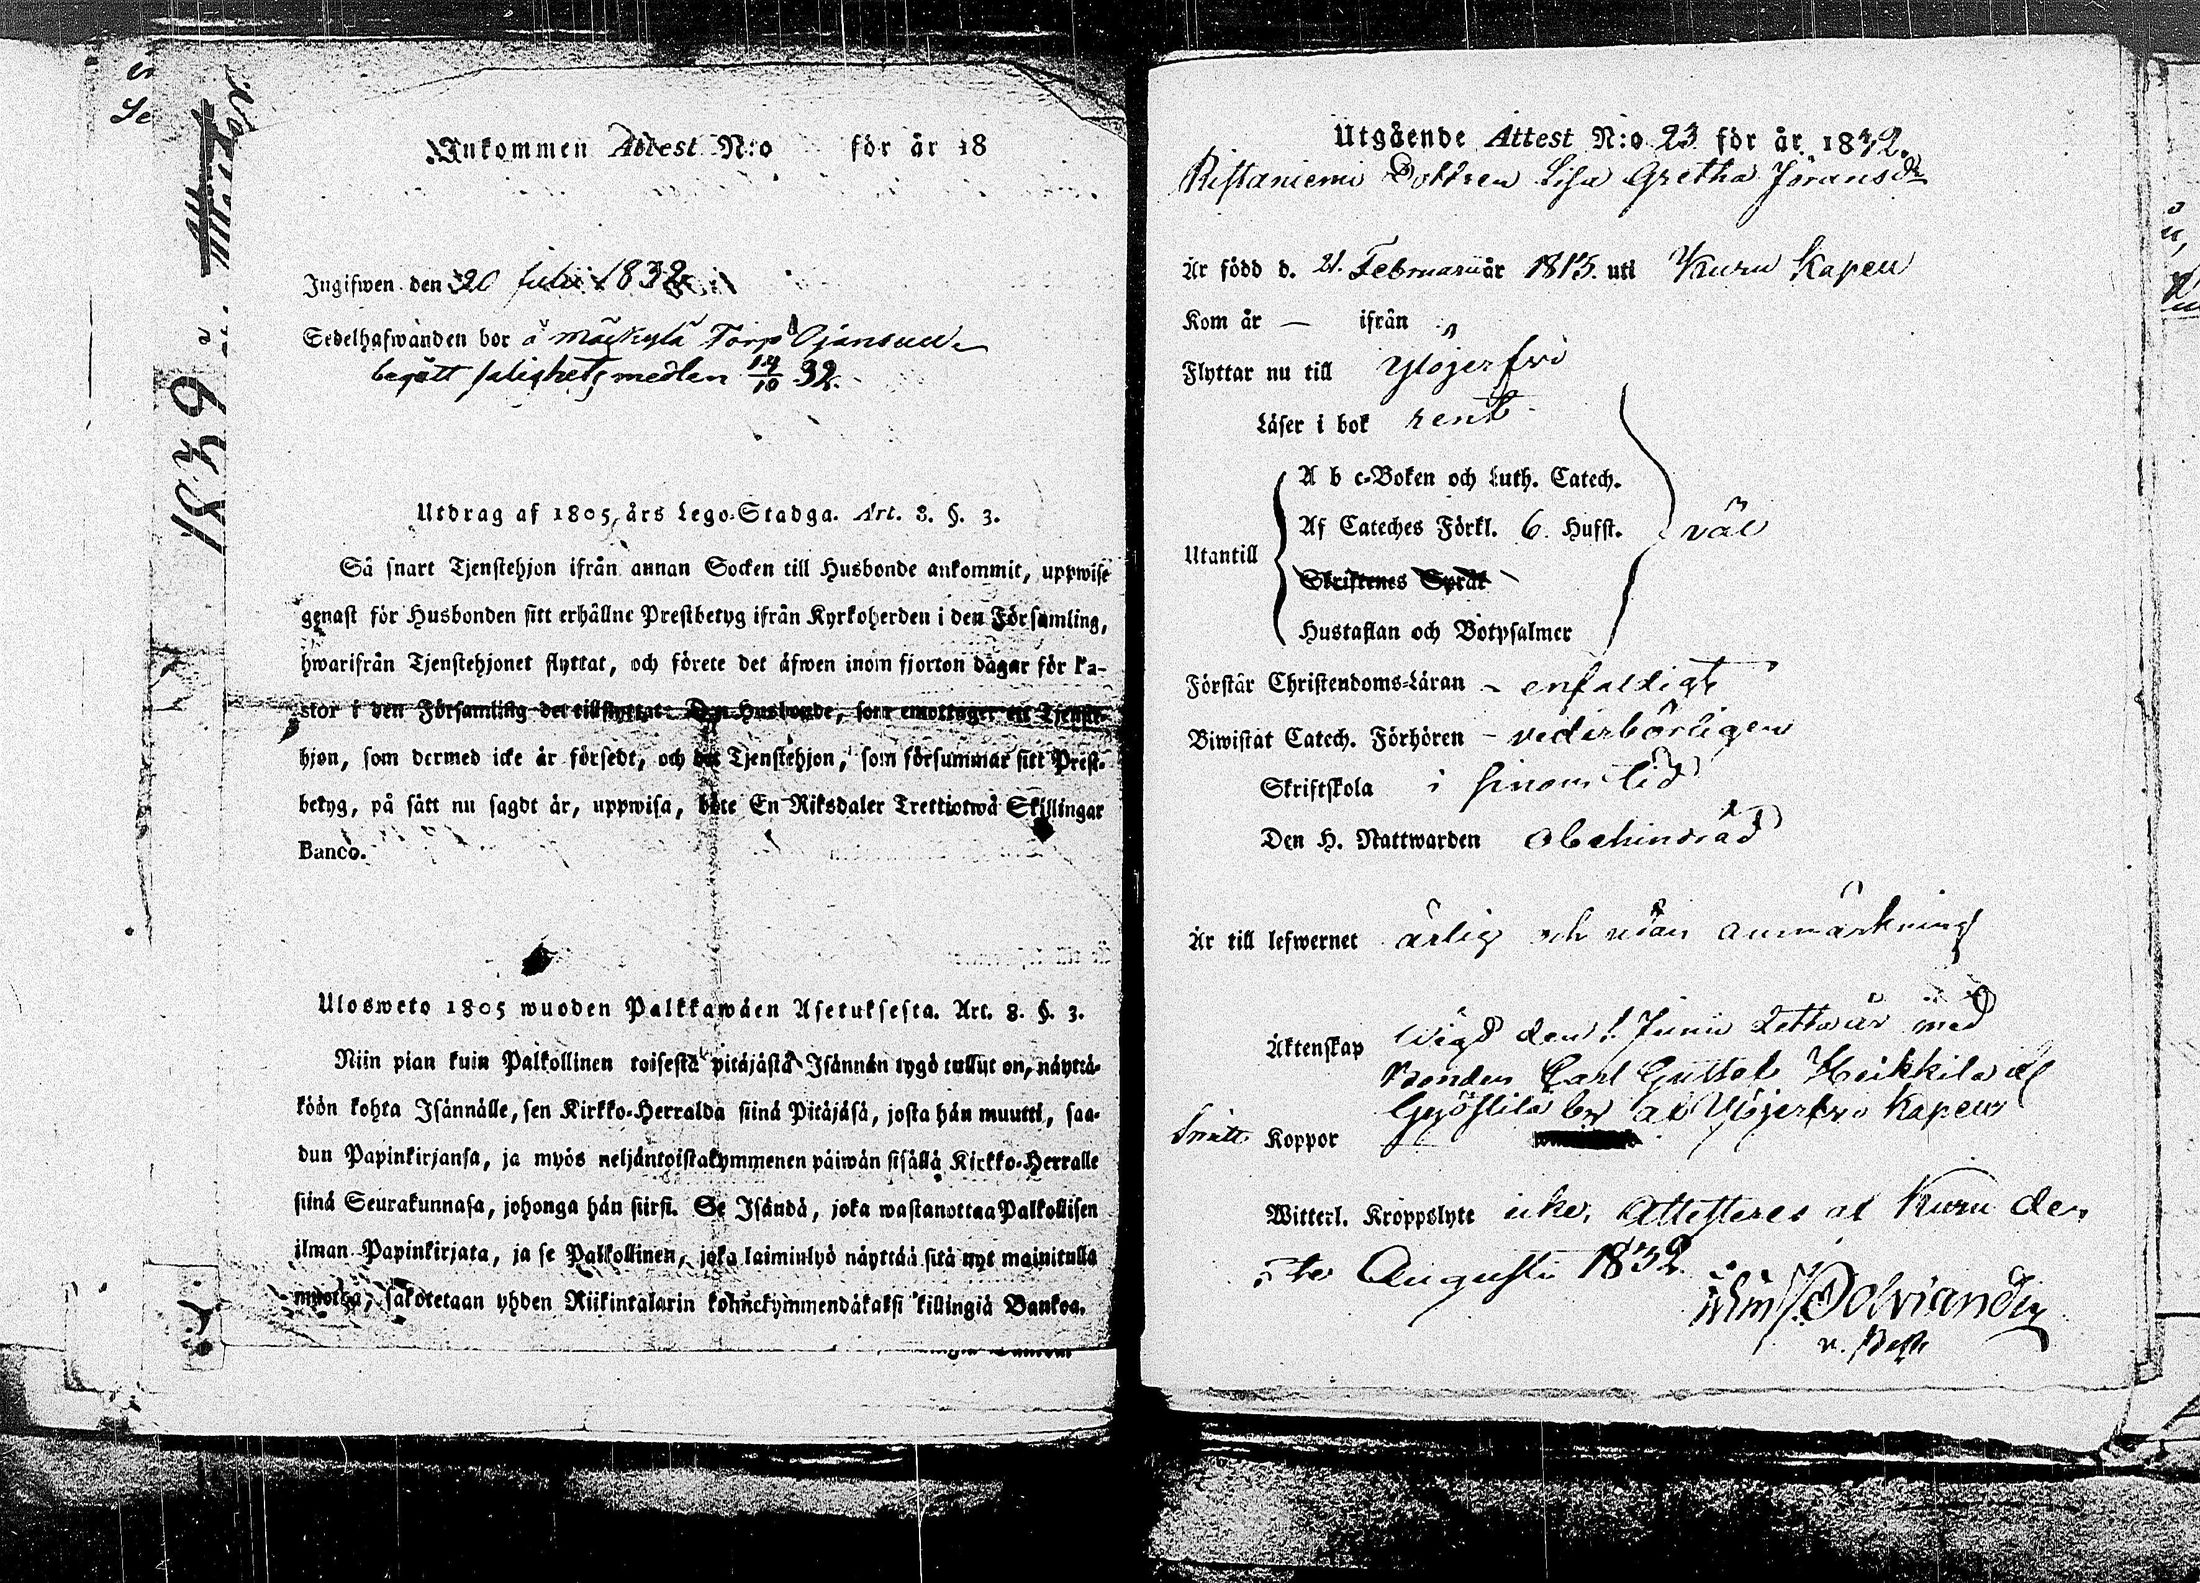 Inkommen Attest N:o för år 18
Ingifwen den 20 Julii 1832
Sedelhafwanden bor å Mäckylä Torp Ojansuu
begått salighetsmedlen 14/10 32.
Utdrag af 1805 års Lego-Stadga. Art. 8. §. 3.
Så snart Tjenstehjon ifrån annan Socken till Husbonde ankommit, uppwise
genast för Husbonden sitt erhållne Prestbetyg ifrån Kyrkoherden i den Församling,
hwarifrån Tjenstehjonet flyttat, och förete det äfwen inom fjorton dagar för Pa-
stor i den Församling det tillflyttat. Den Husbonde, som emottager ett Tjenste-
hjon, som dermed icke är försedt, och det Tjenstehjon, som försummar sitt Prest-
betyg, på sätt nu sagdt är, uppwisa, böte En Riksdaler Trettiotwå Skillingar
Banco.
Ulosweto 1805 wuoden Palkkawäen Asetuksesta. Art. 8. §. 3.
Niin pian kuin Palkollinen toisesta pitäjästä Isännän tygö tullut on, näyttä-
köön kohta Isännälle, sen Kirkko-Herralda siinä Pitäjäsä, josta hän muutti, saa-
dun Papinkirjansa, ja myös neljäntoistakymmenen päiwän sisällä Kirkko-Herralle
siinä Seurakunnasa, johonga hän siirsi. Se Isändä, joka wastanottaa Palkollisen
ilman Papinkirjata, ja se Palkollinen, joka laiminlyö näyttää sitä nyt mainitulla
muotoa, sakotetaan yhden Riikintalarin kolmekymmendäkaksi killingiä Bankoa.
Utgående Attest N:o 23 för år 1832.
Ristaniemi Dottren Lisa Gretha Jöransdr
Är född d. 21. Februarii år 1813. uti Kuru Kapell
Kom år — ifrån
Flyttar nu till Ylöjerfvi
Läser i bok rent
A b c-Boken och Luth. Catech.
Af Cateches Förkl. 6. Hufst. väl
Utantill
Skriftenes Språk
Hustaflan och Botpsalmer
Förstår Christendoms-Läran - enfaldigt
Biwistat Catech. Förhören - vederbörligen
Skriftskola i sinom tid
Den H. Nattwarden obehindrad
Är till lefwernet ärlig och utan anmärkning
Äktenskap Wigd den 1. Junii detta år med
Bonden Carl Gustaf Heikkilä
af Ylöjerfvi Kapell
Koppor
Witterl. Kroppslyte icke. Attesteras af Kuru den
Augusti 1832